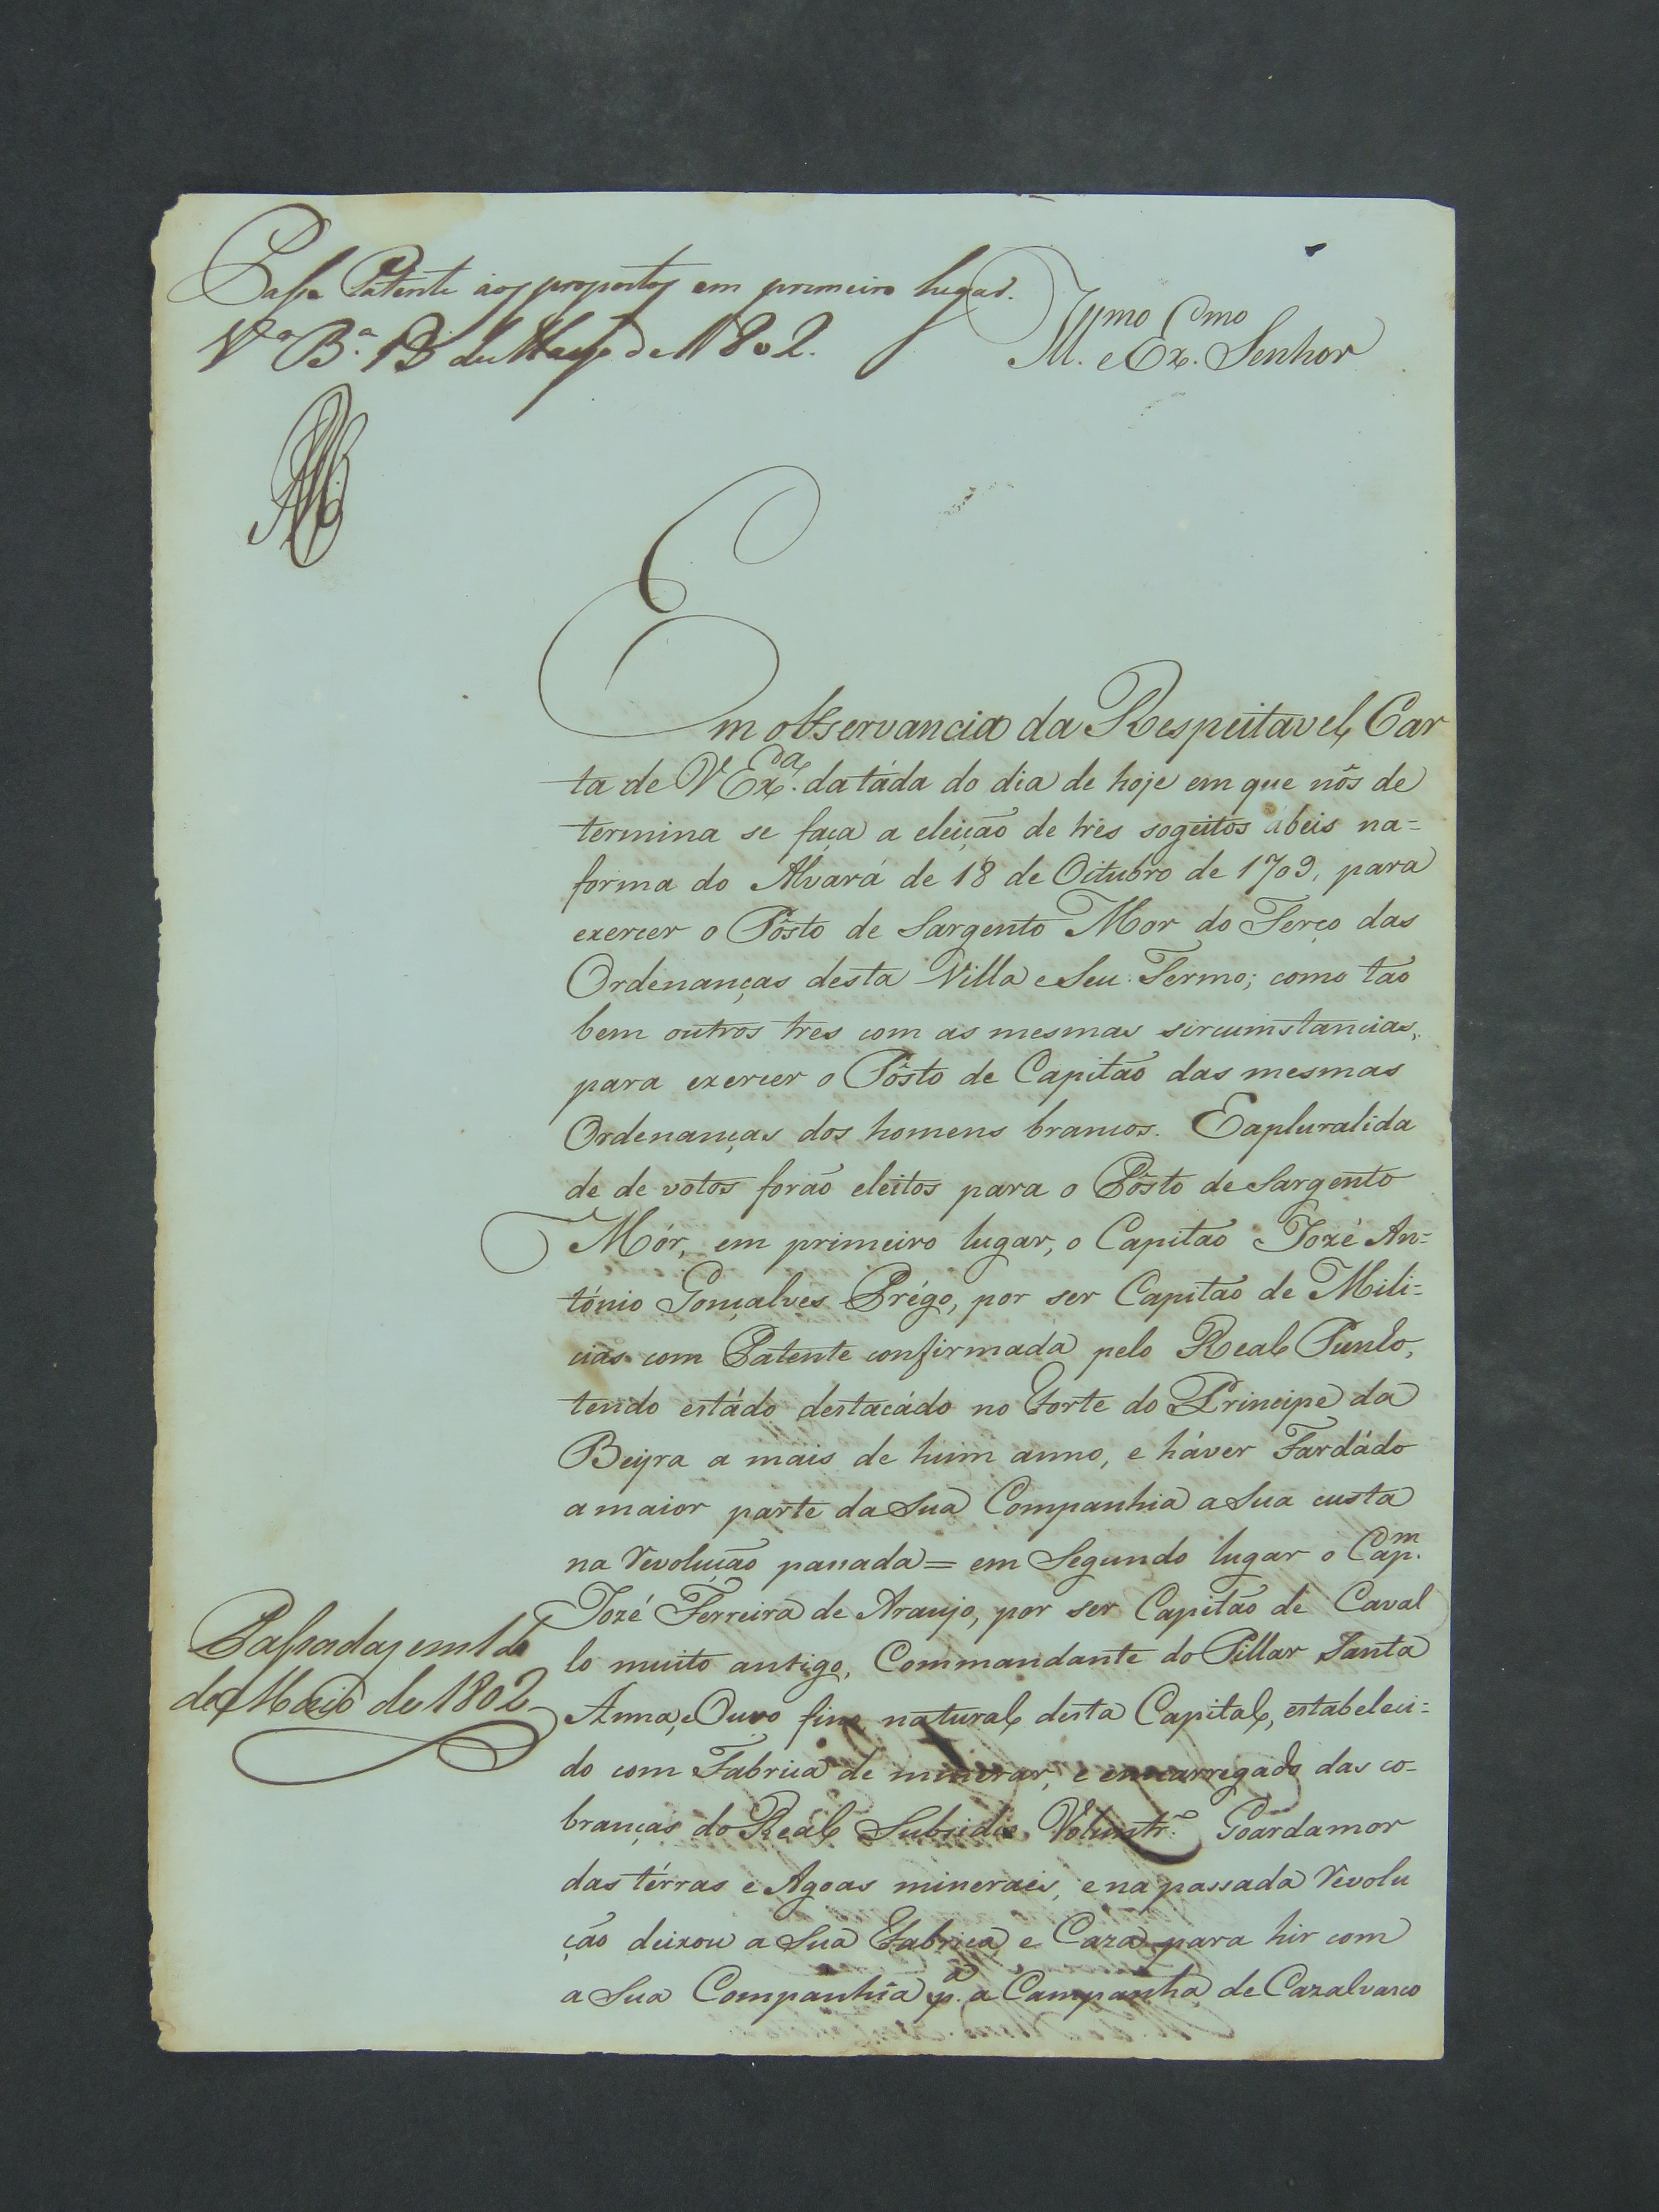 Passe Patente aos propostos em primeiro lugar.
V.ª B.ª 13 de Mayo de 1802.
Ill.mo e Ex.mo Senhor
Em observancia da Respeitavel Car
ta de V Ex.ca datáda do dia de hoje em que nôs de
termina se faça a eleição de tres sogeitos abeis na=
forma do Alvará de 18 de Oitubro de 1709, para
exercer o Pôsto de Sargento Mor do Terço das
Ordenanças desta Villa e Seu Termo; como tao
bem outros tres com as mesmas sircumstancias,
para exercer o Pôsto de Capitão das mesmas
Ordenanças dos homens brancos. E apluralida
de de votos forão eleitos para o Pôsto de Sargento
Mór, em primeiro lugar, o Capitão Jozé An=
tónio Gonçalves Prégo, por ser Capitão de Mili=
cias com Patente confirmada pelo Real Punho,
tendo estádo destacádo no Forte do Principe da
Beyra a mais de hum anno, e háver Fardádo
a maior parte da Sua Companhia a Sua custa
na revolução passada = em Segundo lugar o Cap.m
Jozé Ferreira de Araujo, por ser Capitão de Caval
lo muito antigo, Commandante do Pillar Santa
Anna, e Ouro fino, natural desta Capital, estabeleci=
do com Fabrica de minerar, e encarregado das co=
branças do Real Subsidio Voluntr.o Goardamor
das térras e Agoas minerais, e na passada revolu
ção deixou a Sua Fabrica e Caza para hir com
a Sua Companhia p.a a Campanha de Cazalvasco
Passadas em
de Maio de 1802